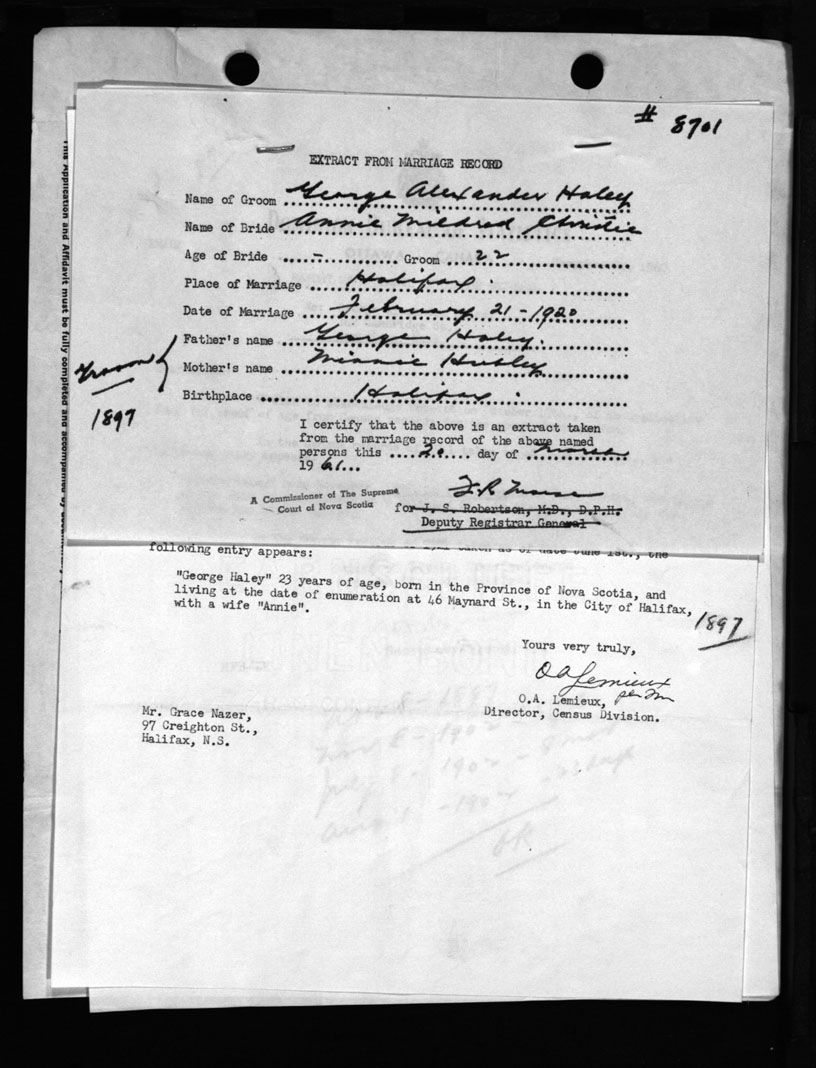 # 8701
EXTRACT FROM MARRIAGE RECORD
Name of Groom George Alexander Haley
Name of Bride Annie Mildred Christie
Age of Bride – Groom 22
Place of Marriage Halifax
Date of Marriage February 21 - 1920
Father's name George Haley
Mother's name Minnie Hubley
Birthplace Halifax
Groom
1897
I certify that the above is an extract taken
from the marriage record of the above named
persons this 20 day of March
1961
A Commissioner of The Supreme
Court of Nova Scotia
for J. S. Robertson, M.D., D.P.H.
Deputy Registrar General
This Application and Affidavit must be fully completed and accompanied by
taken as of date June 1st., the
following entry appears:
"George Haley" 23 years of age, born in the Province of Nova Scotia, and
living at the date of enumeration at 46 Maynard St., in the City of Halifax,
with a wife "Annie".
1897
Yours very truly,
O A Lemieux
per
O.A. Lemieux,
Director, Census Division.
Mr. Grace Nazer,
97 Creighton St.,
Halifax, N.S.